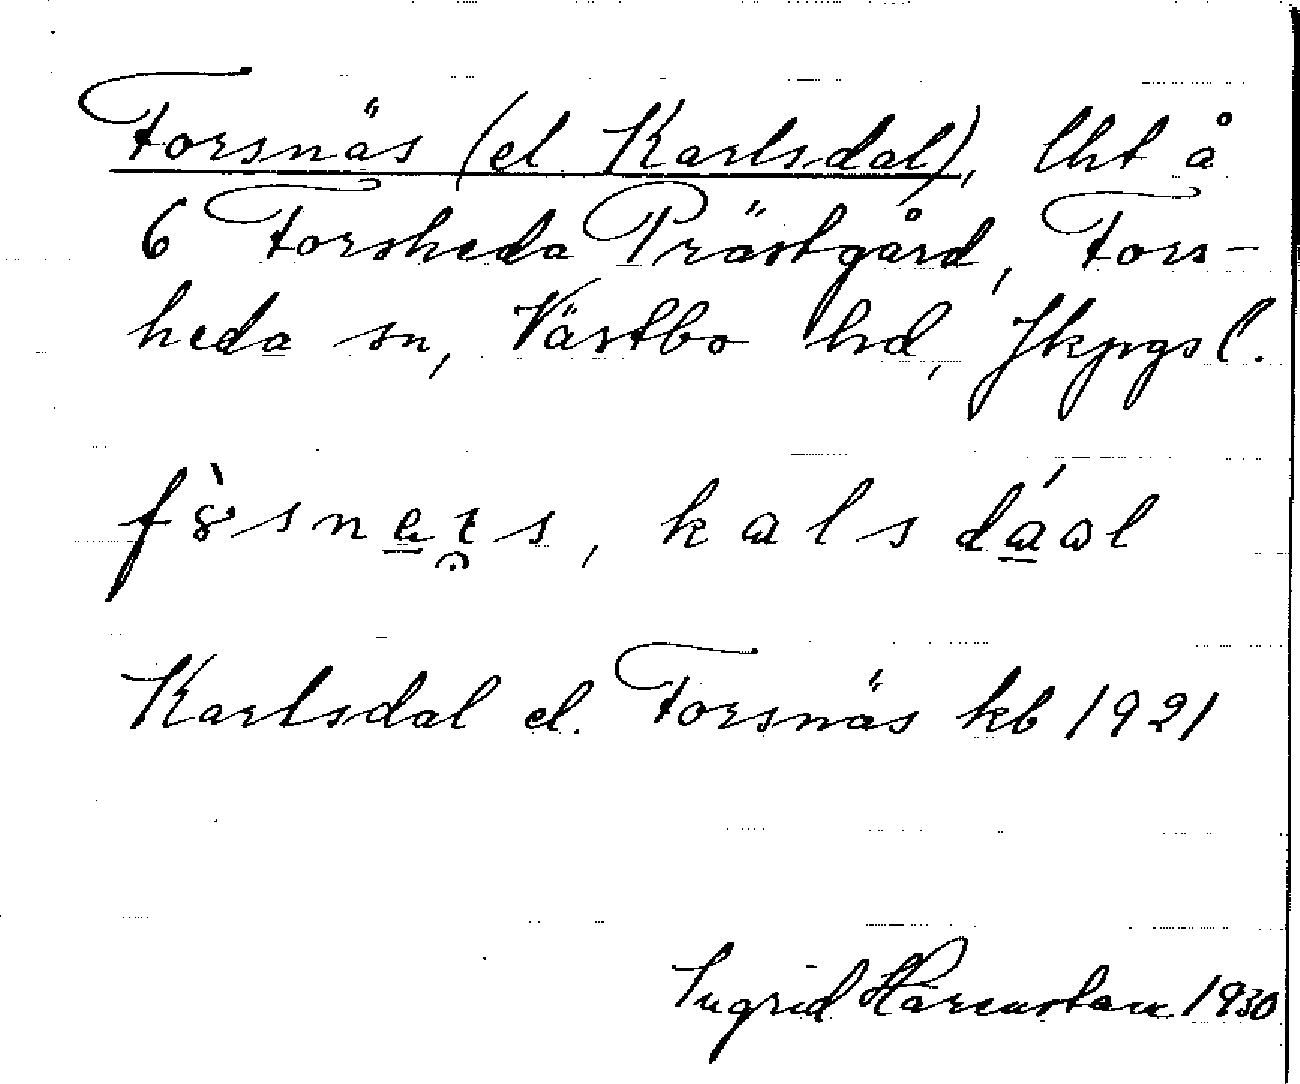 Forsnäs (el Karlsdal), lht å
6 Forsheda Prästgård, Fors-
heda sn, Västbo hd, Jkpgs l.
kalsdáal
Karlsdal el. Forsnäs kb 1921
Ingrid Härenstam 1930